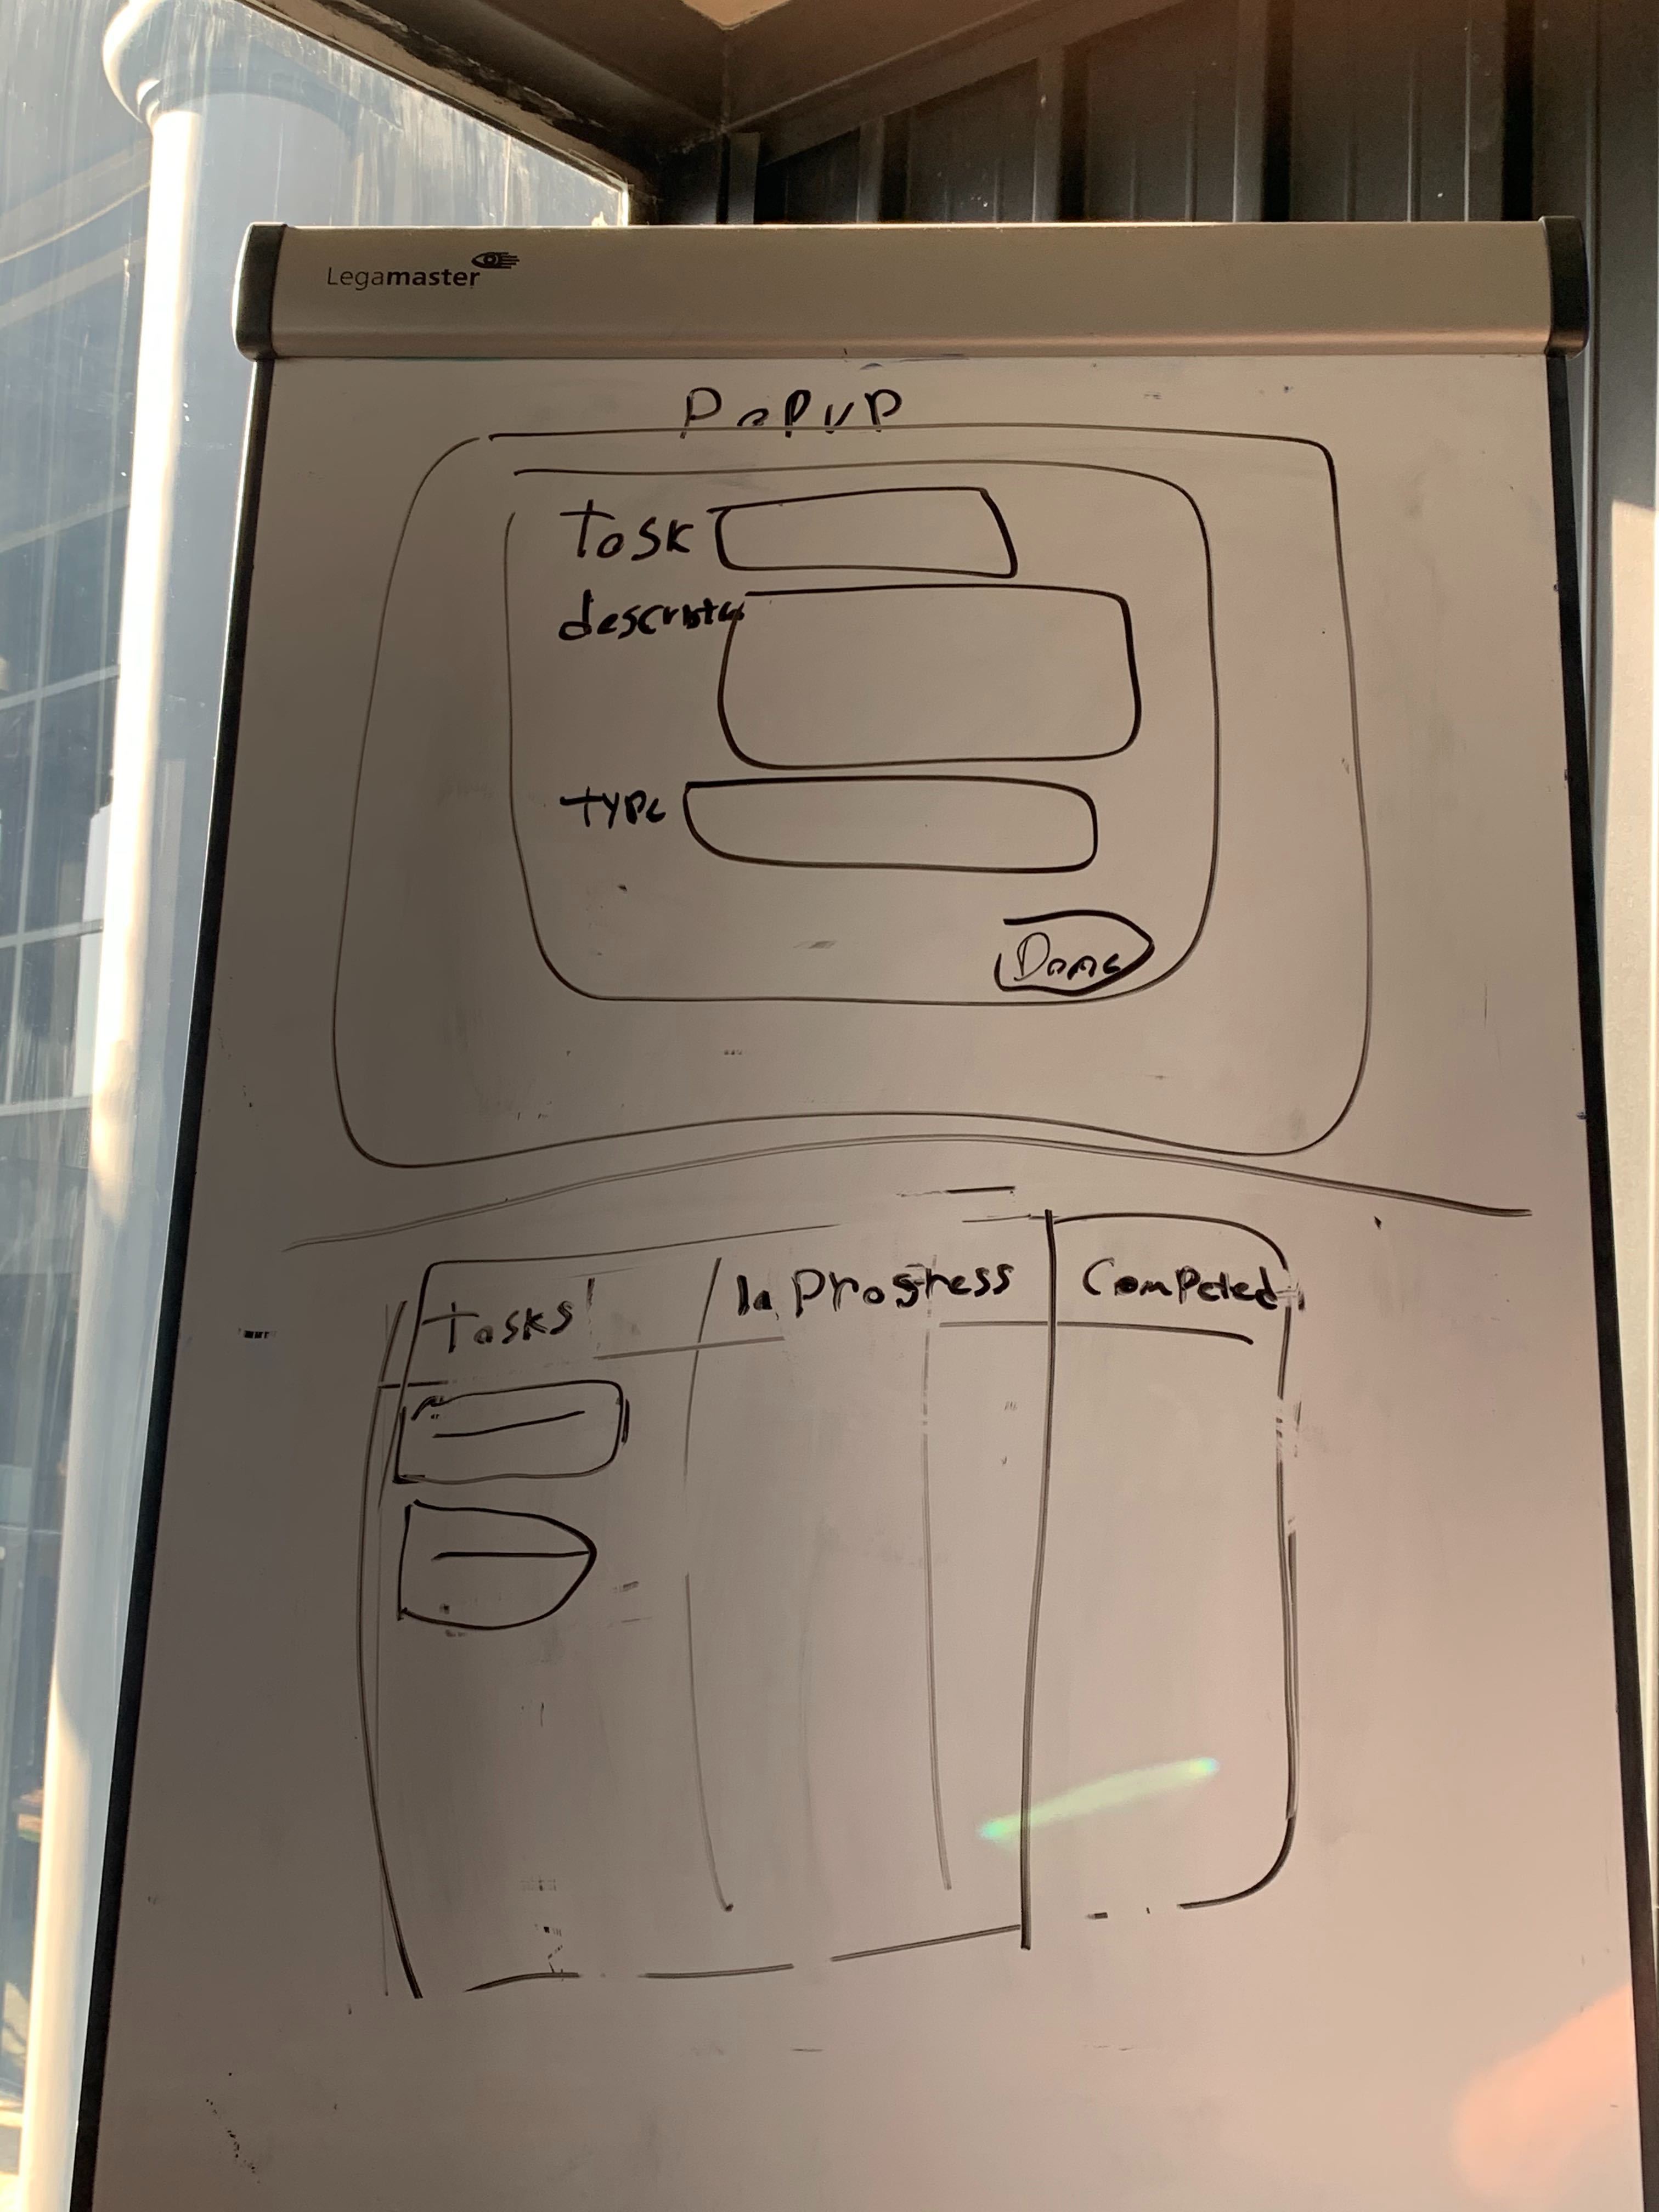 Legamaster
PoPUP
Task
type
Done
Tasks
In Progress
Competed